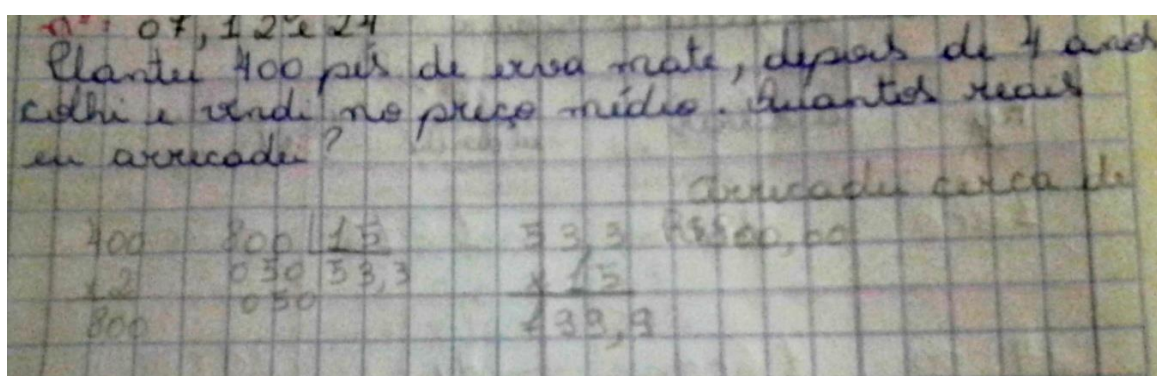 nºs: 07, 12 e 24
Plantei 400 pés de erva mate, depois de 4 anos
colhi e vendi no preço médio. Quantos reais
eu arrecadei?
arrecadei cerca de
400 800 15 53,3 R$800,00
x2 050 53,3 x 15
800 050 799,9